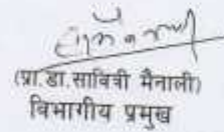 (प्रा.डा.सावित्री मैनाली)
विभागीय प्रमुख